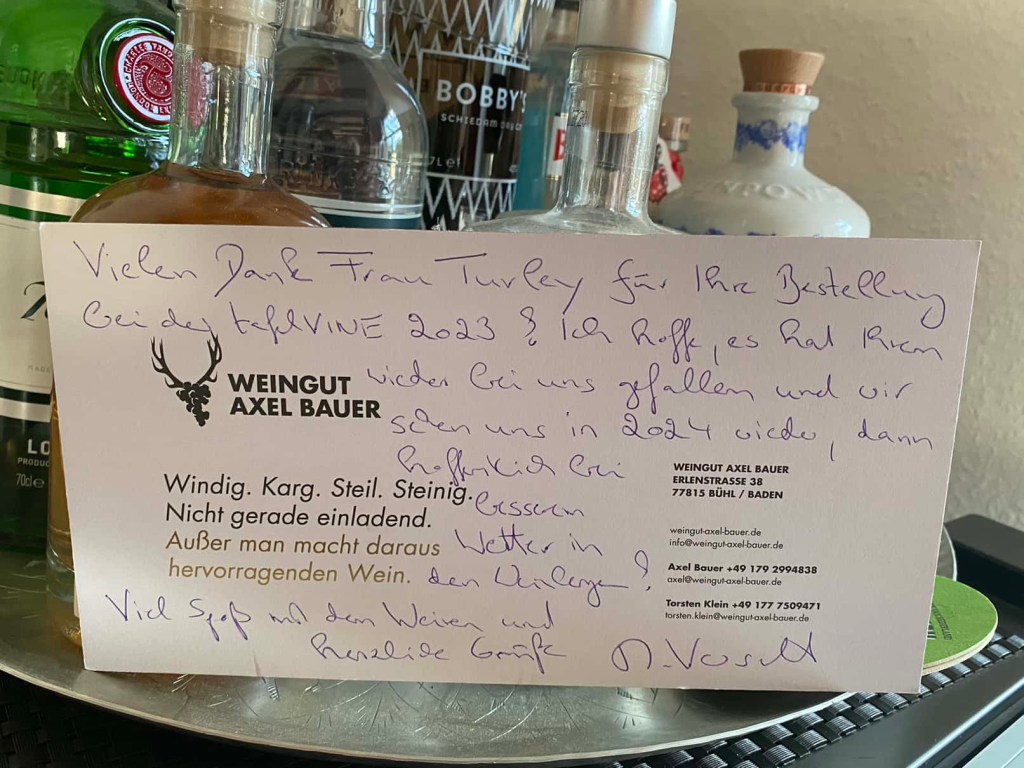 BOBBY'S
SCHIEDAM DRY
LO
70cle
Vielen Dank Frau Turley für Ihre Bestellung
bei der tafelVINE 2023! Ich hoffe, es hat Ihnen
wieder bei uns gefallen und wir
sehen uns in 2024 wieder, dann
hoffentlich bei
besserem
Wetter in
den Weinbergen!
WEINGUT
AXEL BAUER
Windig. Karg. Steil. Steinig.
Nicht gerade einladend.
Außer man macht daraus
hervorragenden Wein.
WEINGUT AXEL BAUER
ERLENSTRASSE 38
77815 BÜHL / BADEN
weingut-axel-bauer.de
info@weingut-axel-bauer.de
Axel Bauer +49 179 2994838
axel@weingut-axel-bauer.de
Torsten Klein +49 177 7509471
torsten.klein@weingut-axel-bauer.de
Viel Spaß mit den Weinen und
herzliche Grüße